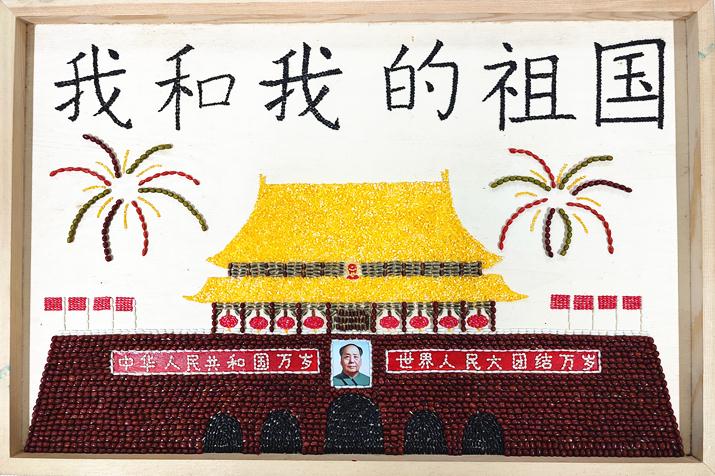 我和我的祖国
中华人民共和国万岁
世界人民大团结万岁